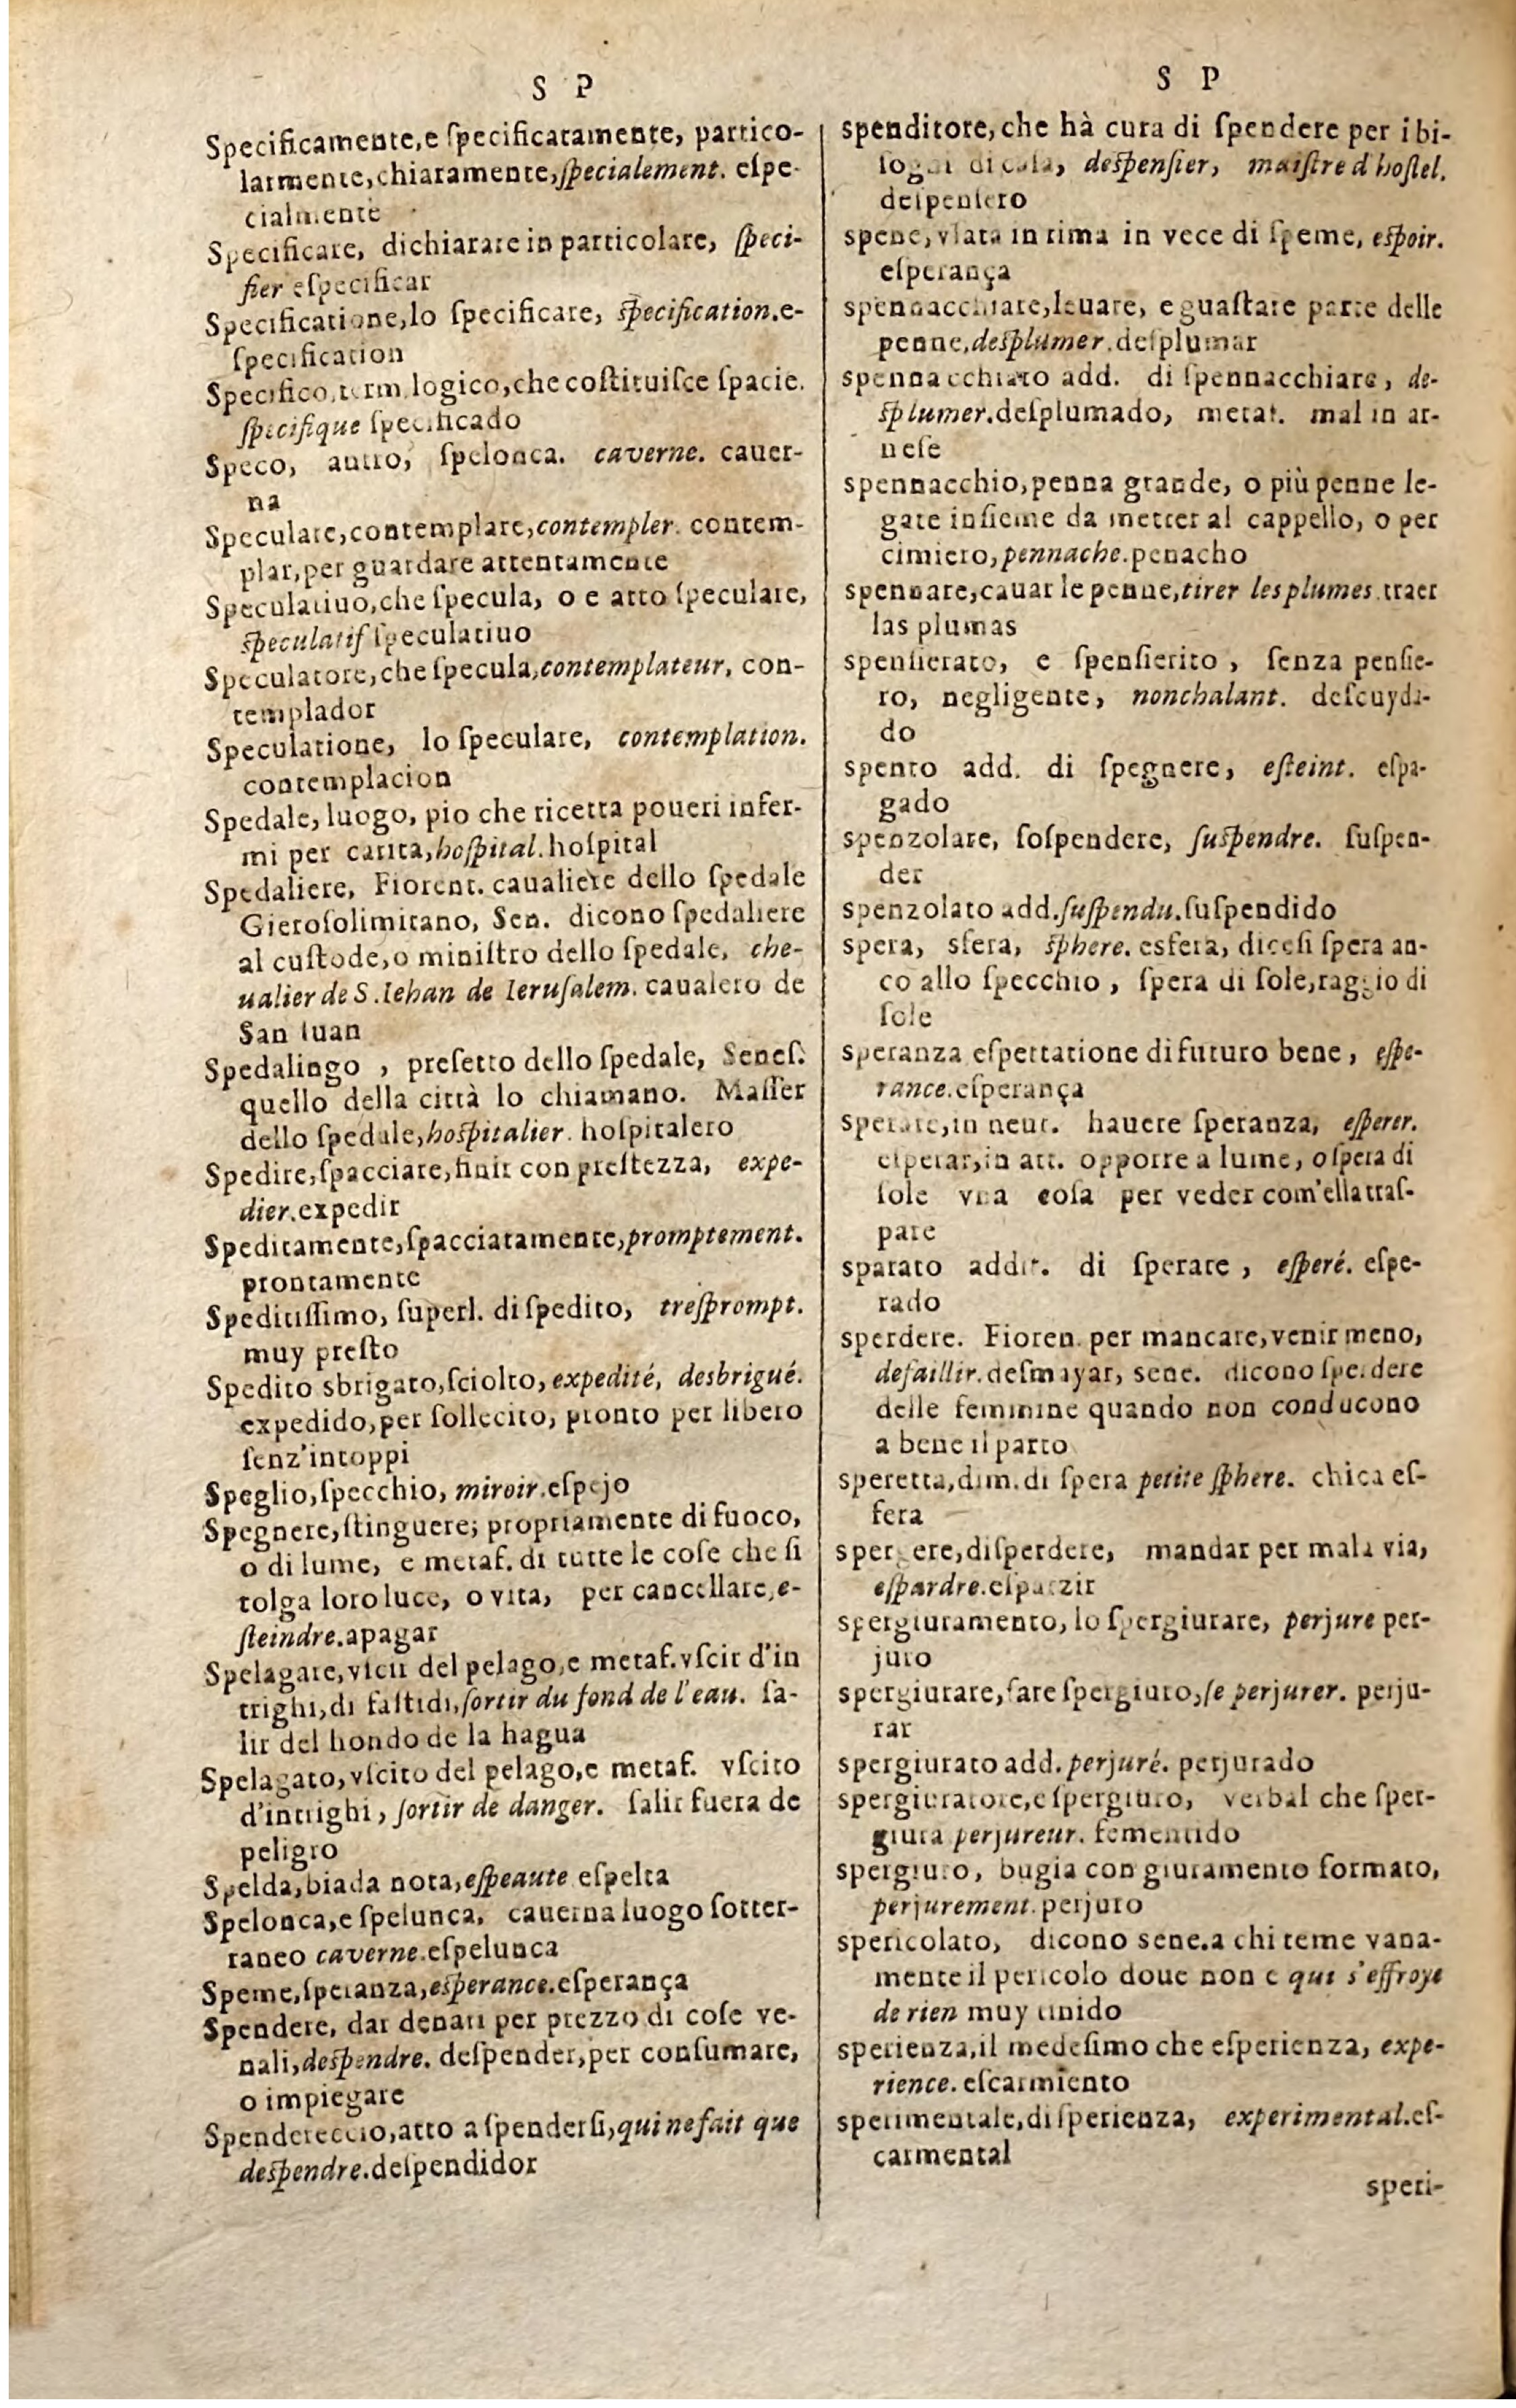 S P
Specificamente, e ſpecificatamente, partico-
larmente, chiaramente, ſpecialement. eſpe-
cialmente
Specificare, dichiarare in particolare, ſpeci-
fier eſpecificar
Specificatione, lo ſpecificare, ſpecification. e-
ſpecification
Specifico, term. logico, che coſtituiſce ſpacie.
ſpecifique ſpecificado
Speco, antro, ſpelonca. caverne. cauer-
na
Speculare, contemplare, contempler. contem-
plar, per guardare attentamente
Speculatiuo, che ſpecula, o e atto ſpeculare,
ſpeculatif ſpeculatiuo
Speculatore, che ſpecula, contemplateur, con-
templador
Speculatione, lo ſpeculare, contemplation.
contemplacion
Spedale, luogo, pio che ricetta poueri infer-
mi per carita, hoſpital. hoſpital
Spedaliere, Fiorent. caualiere dello ſpedale
Gieroſolimitano, Sen. dicono ſpedaliere
al cuſtode, o miniſtro dello ſpedale, che-
ualier de S. Iehan de Ieruſalem. caualero de
San Iuan
Spedalingo , prefetto dello ſpedale, Seneſ.
quello della città lo chiamano. Maſſer
dello ſpedale, hoſpitalier. hoſpitalero
Spedire, ſpacciare, finir con preſtezza, expe-
dier. expedir
Speditamente, ſpacciatamente, promptement.
prontamente
Speditiſſimo, ſuperl. di ſpedito, treſprompt.
muy preſto
Spedito sbrigato, ſciolto, expedité, desbrigué.
expedido, per ſollecito, pronto per libero
ſenz'intoppi
Speglio, ſpecchio, miroir. eſpejo
Spegnere, ſtinguere; propriamente di fuoco,
o di lume, e metaf. di tutte le coſe che ſi
tolga loro luce, o vita, per cancellare, e-
ſteindre. apagar
Spelagare, vſcir del pelago, e metaf. vſcir d'in
trighi, di faſtidi, ſortir du fond de l'eau. ſa-
lir del hondo de la hagua
Spelagato, vſcito del pelago, e metaf. vſcito
d'intrighi, ſortir de danger. ſalir fuera de
peligro
Spelda, biada nota, eſpeaute eſpelta
Spelonca, e ſpelunca, cauerna luogo ſotter-
raneo caverne. eſpelunca
Speme, ſperanza, eſperance. eſperança
Spendere, dar denari per prezzo di coſe ve-
nali, deſpendre. deſpender, per conſumare,
o impiegare
Spendereccio, atto a ſpenderſi, qui ne fait que
deſpendre. deſpendidor
S P
spenditore, che hà cura di ſpendere per i bi-
ſogni di caſa, deſpenſier, maiſtre d hoſtel.
deſpenſero
spene, vſata in rima in vece di ſpeme, eſpoir.
eſperança
spennacchiare, leuare, e guaſtare parte delle
penne, deſplumer. deſplumar
spennacchiato add. di ſpennacchiare, de-
ſplumer. deſplumado, metat. mal in ar-
neſe
spennacchio, penna grande, o più penne le-
gate inſieme da metter al cappello, o per
cimiero, pennache. penacho
spennare, cauar le penne, tirer les plumes. traer
las plumas
spenſierato, e ſpenſierito , ſenza penſie-
ro, negligente, nonchalant. deſcuyda-
do
spento add. di ſpegnere, eſteint. eſpa-
gado
spenzolare, ſoſpendere, ſuſpendre. ſuſpen-
der
spenzolato add. ſuſpendu. ſuſpendido
spera, sfera, ſphere. esfera, diceſi ſpera an-
co allo ſpecchio , ſpera di ſole, raggio di
ſole
speranza eſpettatione di futuro bene , eſpe-
rance. eſperança
sperare, in neut. hauere ſperanza, eſperer.
eſperar, in att. opporre a lume, o ſpera di
ſole vna coſa per veder com'ella traſ-
pare
sparato addit. di ſperare , eſperé. eſpe-
rado
sperdere. Fioren. per mancare, venir meno,
defaillir. deſmayar, sene. dicono ſperdere
delle feminine quando non conducono
a bene il parto
speretta, dim. di ſpera petite ſphere. chica eſ-
fera
spergere, diſperdere, mandar per mala via,
eſpardre. eſparzir
spergiuramento, lo ſpergiurare, perjure per-
juro
spergiurare, fare ſpergiuro, ſe perjurer. perju-
rar
spergiurato add. perjuré. perjurado
spergiuratore, e ſpergiuro, verbal che ſper-
giura perjureur. fementido
spergiuro, bugia con giuramento formato,
perjurement. perjuro
spericolato, dicono sene. a chi teme vana-
mente il pericolo doue non e qui s'effroye
de rien muy timido
sperienza, il medeſimo che eſperienza, expe-
rience. eſcarmiento
sperimentale, di ſperienza, experimental. eſ-
carmental
speri-